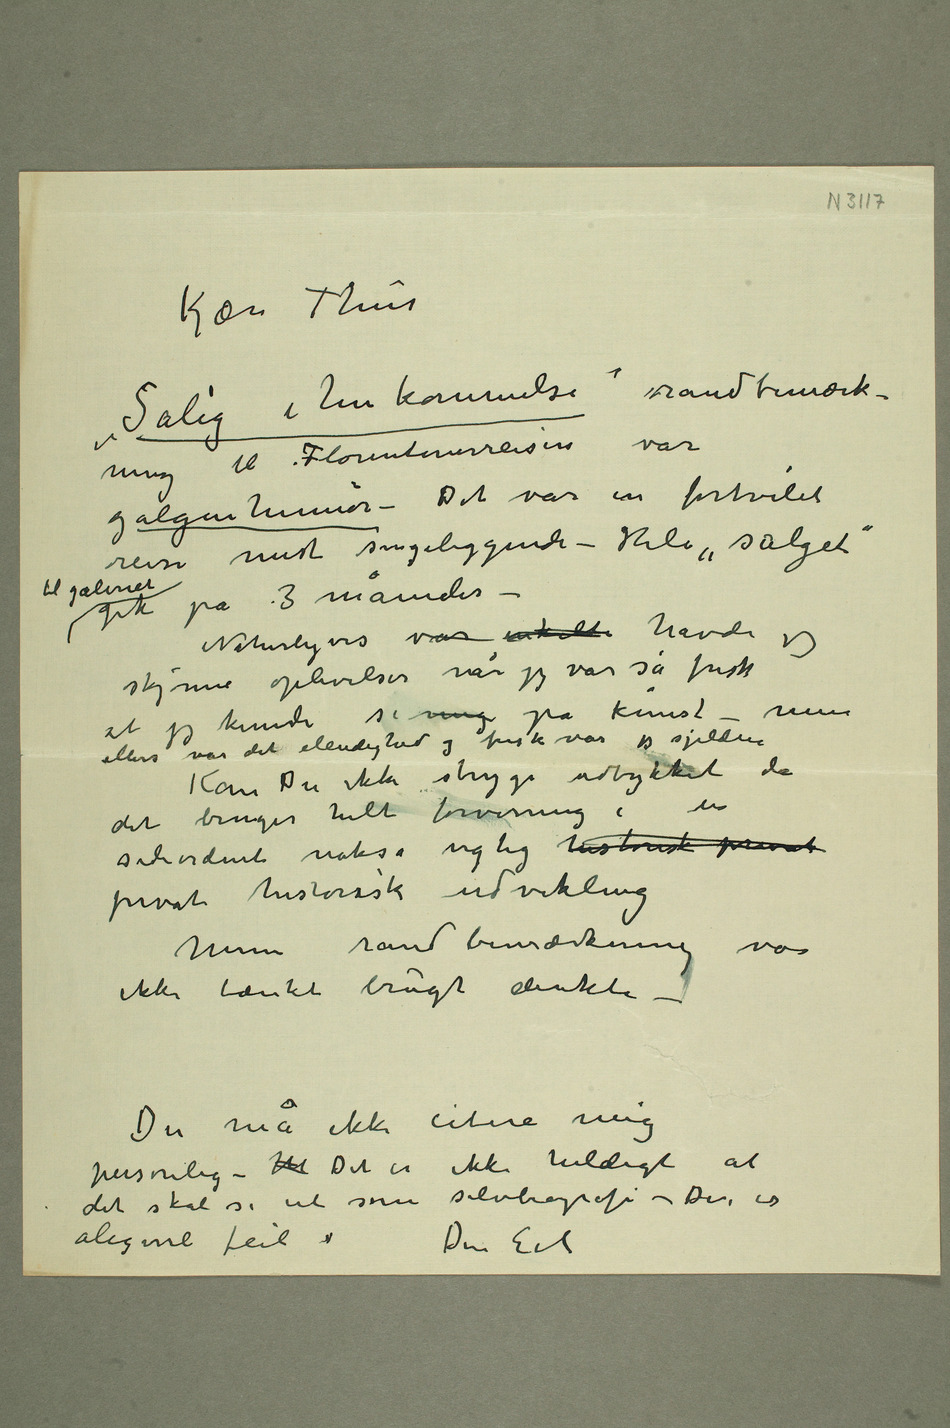 N 3117
Kjære Thiis
„Salig ihukommelse“ randbemærk-
ning til Florentinerreisen var
galgenhumør – Det var en fortvilet
reise mest sengeliggende – Hele „salget“
til galeriet
gik på 3 måneder –
Naturligvis var enkelte havde jeg
skjønne oplevelser når jeg var så frisk
at jeg kunde se meg på kunst – men
ellers var det elendighed og frisk var jeg sjelden
Kan Du ikke stryge udtrykket da
det bringer helt forvirring i en
siderordent nokså vigtig historisk privat
privat historisk udvikling
Min randbemærkning var
ikke tænkt brugt direkte –
Du må ikke citere mig
personlig – Det Det er ikke heldigt at
det skal se ut som selvbiografi – Der er
aligevel feil
Din E M